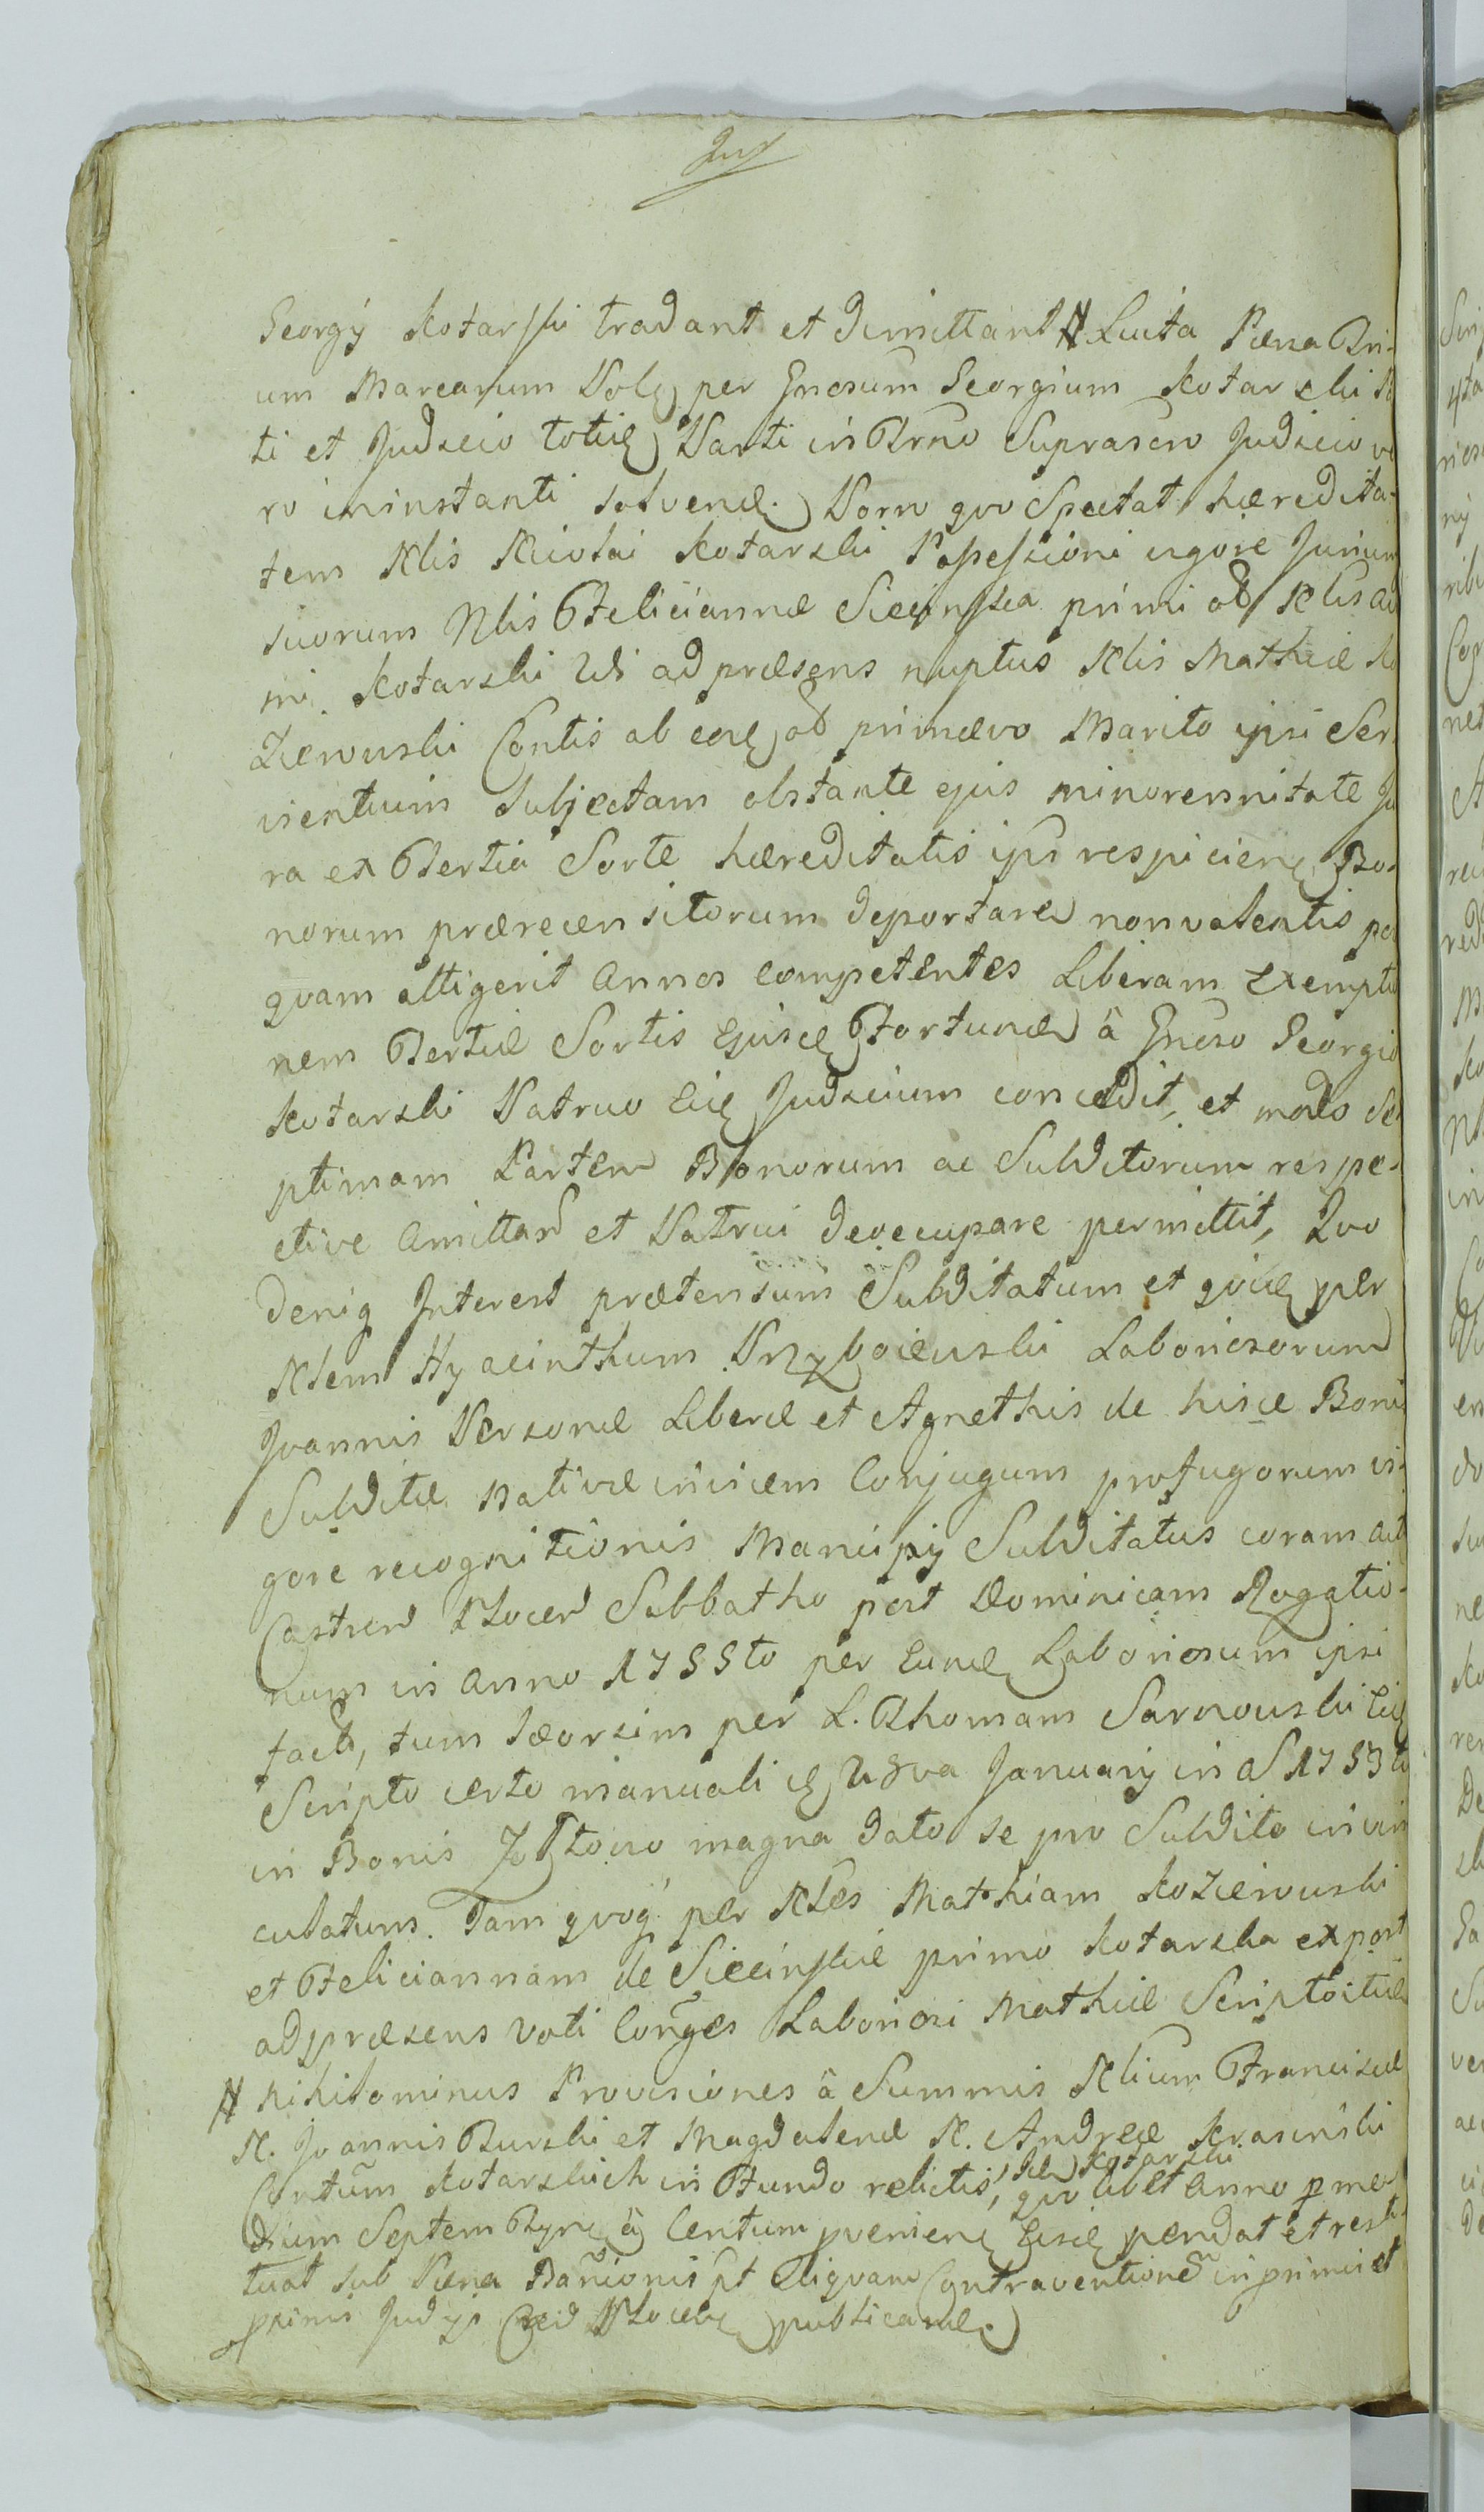 Georgÿ Kotarski tradant et dimittant # Luita Pæna Tri-
um Marcarum Pol per Gnosum Georgium Kotarski
ti et Judicio totie Parti in Trno Suprascro Judicio ve
ro ininstanti solvend. Porro qvo Spectat hæredita-
tem Nlis Nicolai Kotarski Possessioni vigore Jurium
suorum Nlis Feliciannæ Siecinska primi ad Nlis
mi Kotarski 2di ad præsens nuptus Nlis Mathiæ Ko
ziewuski Contis ab ead primævo Marito ipsi Ser
vientium Subjectam obstante ejus minorennitate Ju
ra ex Tertia Sorte hæreditatis ipsi respicien Bo-
norum prærecensitorum deportare non valentis po
qvam attigerit Annos competentes Liberam Exemptio
nem Tertiæ Sortis Ejusd Fortunæ à Gnoso Georgio
Kotarski Patruo Judicium concedit, et modo Se
ptimam Partem Bonorum ac Subditorum respe-
ctive Amittard et Patrui deoccupare permittit, Qvo
deniq Interest prætensum Subditatum et qvid per
Nlem Hyacinthum Przyboiewski Laboriosorum
Joannis Personæ Liberæ et Agnethis de hisce Bonis
Subditæ Nativæ invicem Conjugum profugorum vi-
gore recognitionis Mancipÿ Subditatus coram Act
Castren Plocen Sabbatho post Dominicam Rogatio-
num in Anno 1755to per Eund Laboriosum ipsi
fact, tum seorsim per L. Thomam Sarnowski
Scripto certo manuali 28va Januarÿ in A 1753
in Bonis magna dato se pro Subdito invin
culatum. Tam qvoq per Nles Mathiam Koziewuski
et Feliciannam de Siecinskie primo Kotarska expost
ad præsens voti Conges Laboriosi Mathiæ
# Nihilominus Provisiones à Summis Nlium Franciscæ
N. Joannis Burski et Magdalenæ N. Andreæ Krasinski
Kotarski
Contum Kotarskich in Fundo relictis, qvolibet Anno p me
dium Septem à Centum provenien Eisd pendat et resti-
tuat sub Pæna Banionis pt Aliqvam Contraventione in primis et
primis Judÿs publicand